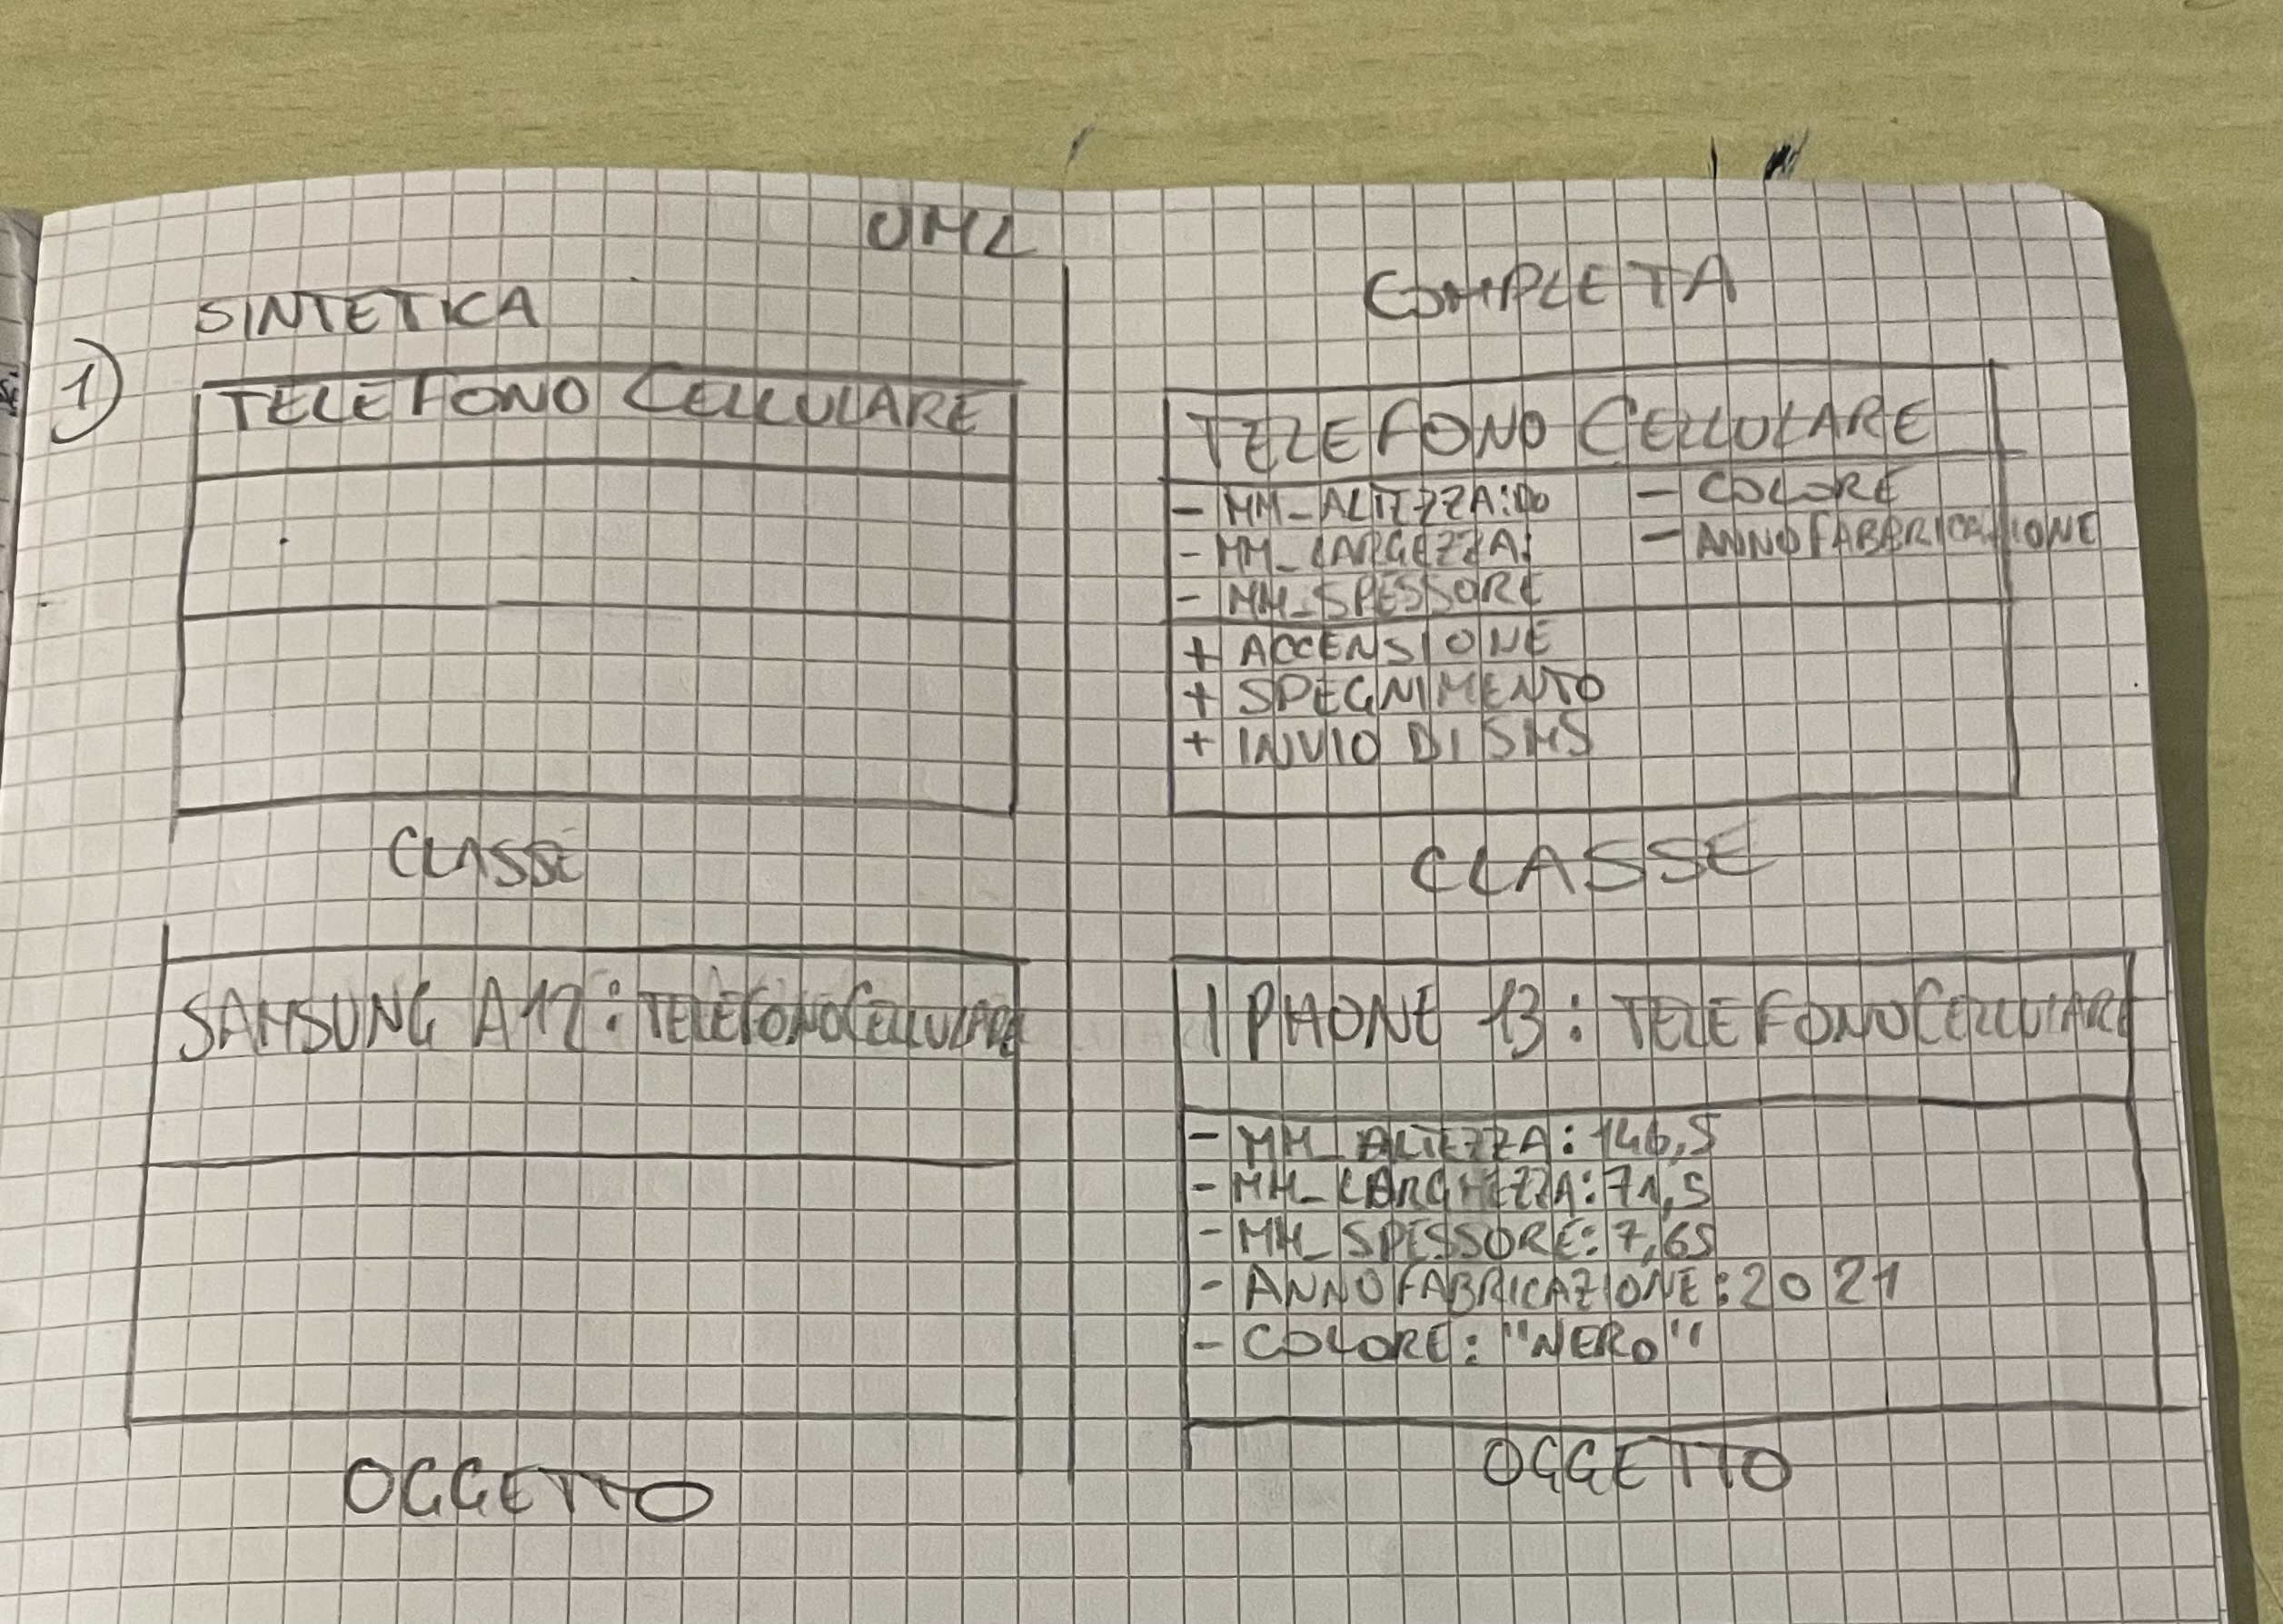 UML
SINTETICA
1)
TELEFONO CELLULARE
CLASSE
SAMSUNG A12: TELEFONOCELLULARE
OGGETTO
COMPLETA
TELEFONO CELLULARE
- MM_ALTEZZA:DO
- MM_LARGEZZA:
- MM_SPESSORE
- COLORE
- ANNOFABBRICAZIONE
+ ACCENSIONE
+ SPEGNIMENTO
+ INVIO DI SMS
CLASSE
IPHONE 13: TELEFONOCELLULARE
- MM_ALTEZZA: 146,5
- MM_LARGHEZZA: 71,5
- MM_SPESSORE: 7,65
- ANNOFABRICAZIONE: 2021
- COLORE: "NERO"
OGGETTO